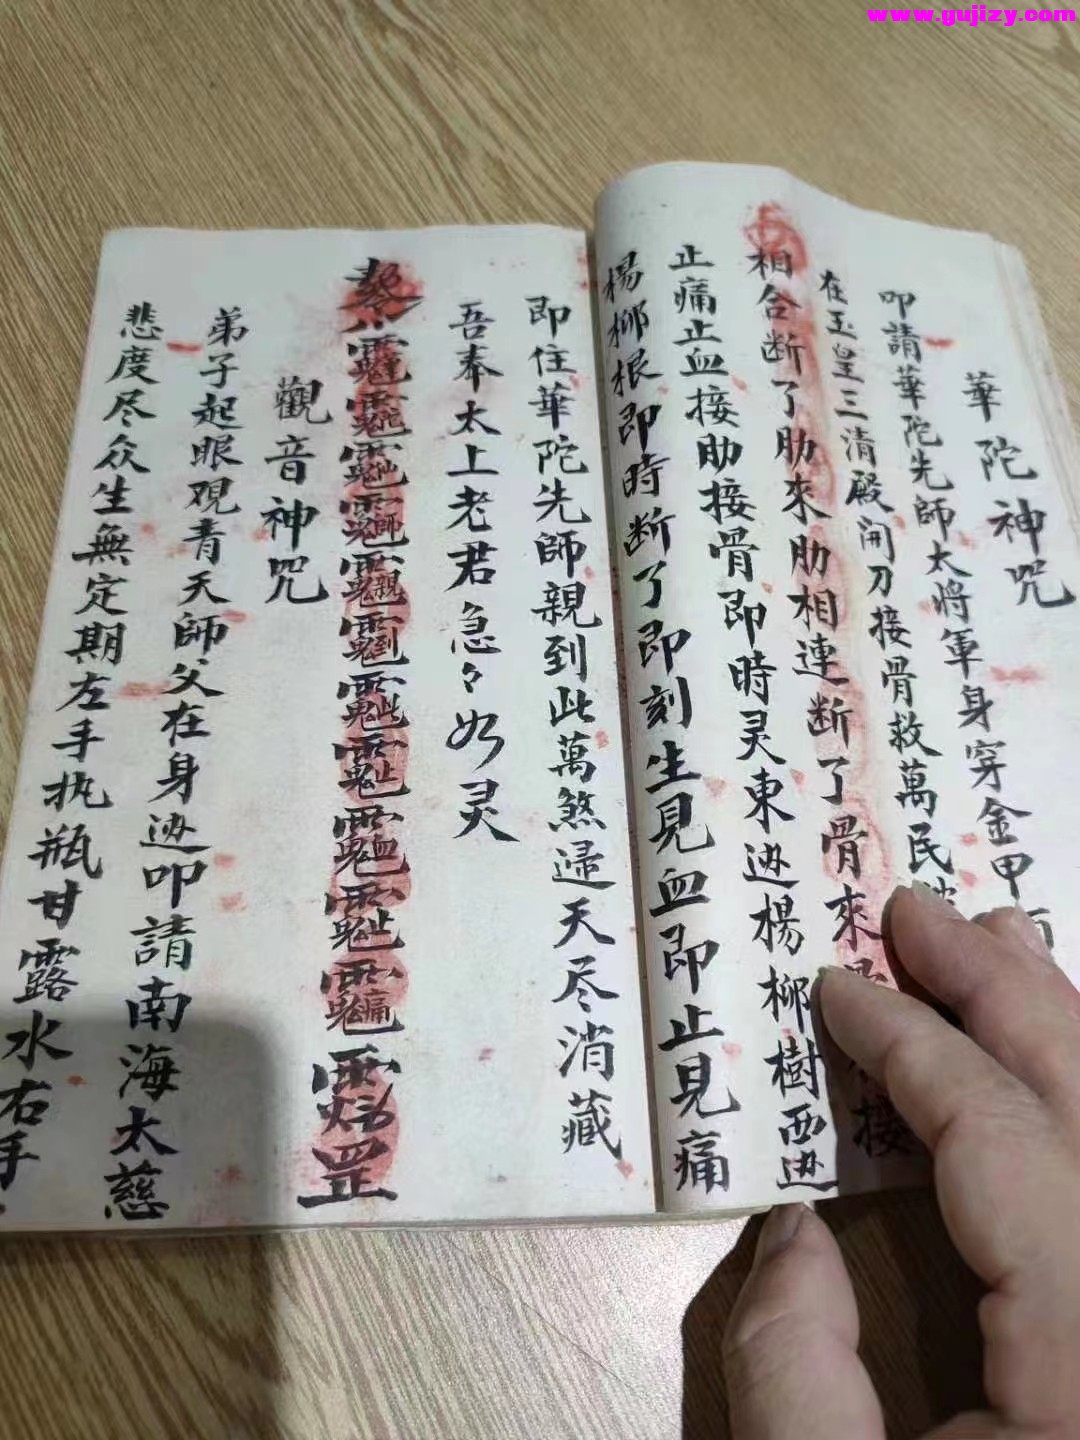 www.gujizy.com
華陀神咒
叩請華陀先師太將軍身穿金甲
在玉皇三清殿開刀接骨救萬民
相合断了肋來肋相連断了骨來
接
止痛止血接肋接骨即時灵東边楊柳樹西边
楊柳根即時断了即刻生見血即止見痛
即住華陀先師親到此萬煞归天尽消藏
吾奉太上老君急々如灵
罡
觀音神咒
弟子起眼观青天師父在身边叩請南海太慈
悲度尽众生無定期左手执瓶甘露水右手